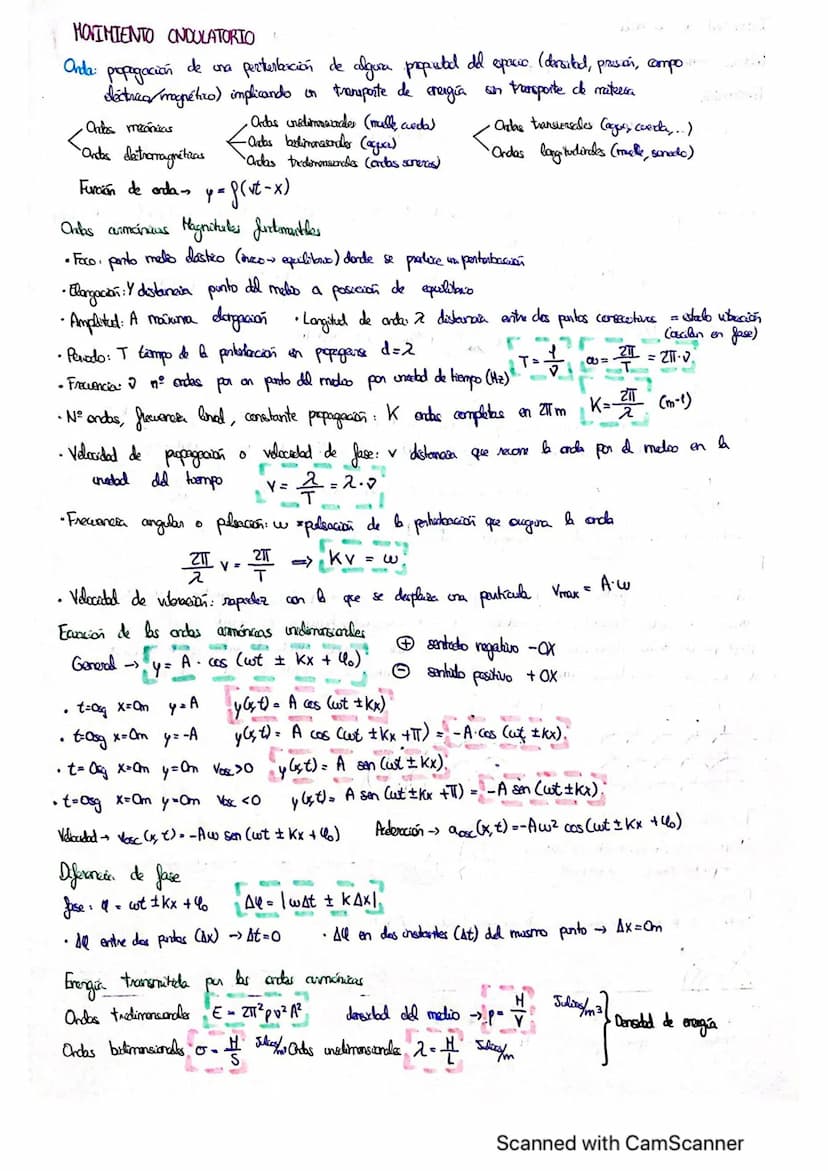 MOVIMIENTO ONDULATORIO
Onda: propagación de una perturbación de alguna propiedad del espacio (densidad, presión, campo
eléctrico/magnético) implicando un transporte de energía sin transporte de materia
Ondas mecánicas
Ondas electromagnéticas
Ondas unidimensionales (muelle, cuerda)
Ondas bidimensionales (agua)
Ondas tridimensionales (ondas sonoras)
Ondas transversales (agua, cuerda,...)
Ondas longitudinales (muelle, sonido)
Función de onda → y = f(vt-x)
Ondas armónicas Magnitudes fundamentales
• Foco: punto medio elástico (inicio → equilibrio) donde se produce una perturbación
• Elongación: Y distancia punto del medio a posición de equilibrio
• Amplitud: A máxima elongación • Longitud de onda: λ distancia entre dos puntos consecutivos = estado vibración
(oscilan en fase)
• Periodo: T tiempo de la perturbación en propagarse d=λ T = 1/ν ω = 2π/T = 2π·ν
• Frecuencia: ν nº ondas por un punto del medio por unidad de tiempo (Hz)
• Nº ondas, frecuencia lineal, constante propagación: K ondas completas en 2π m K = 2π/λ (m-1)
• Velocidad de propagación o velocidad de fase: v distancia que recorre la onda por el medio en la
unidad del tiempo v = λ/T = λ·ν
• Frecuencia angular o pulsación: ω =pulsación de la perturbación que origina la onda
2π/λ v = 2π/T ⇒ Kv = ω
• Velocidad de vibración: rapidez con la que se desplaza una partícula Vmax = A·ω
Ecuación de las ondas armónicas unidimensionales
General → y = A · cos (ωt ± Kx + φ₀)
⊕ sentido negativo -OX
⊖ sentido positivo +OX
• t=0sg x=0m y=A y(x,t) = A cos (ωt ±Kx)
• t=0sg x=0m y=-A y(x,t) = A cos (ωt ±Kx +π) = -A·cos (ωt ±Kx)
• t=0sg x=0m y=0m Vosc>0 y(x,t) = A sen (ωt ±Kx)
• t=0sg x=0m y=0m Vosc<0 y(x,t) = A sen (ωt ±Kx +π) = -A sen (ωt ±Kx)
Velocidad → Vosc (x,t) = -Aω sen (ωt ± Kx + φ₀) Aceleración → aosc (x,t) = -Aω² cos (ωt ± Kx + φ₀)
Diferencia de fase
fase: φ = ωt ± kx + φ₀ Δφ = |ωΔt ± kΔx|
• Δφ entre dos puntos (Δx) → Δt=0 • Δφ en dos instantes (Δt) del mismo punto → Δx=0m
Energía transmitida por las ondas armónicas
Ondas tridimensionales E = 2π²ρν²A² densidad del medio → ρ = M/V Julios/m³
Densidad de energía
Ondas bidimensionales σ = M/S Julios/m² Ondas unidimensionales λ = M/L Julios/m
Scanned with CamScanner